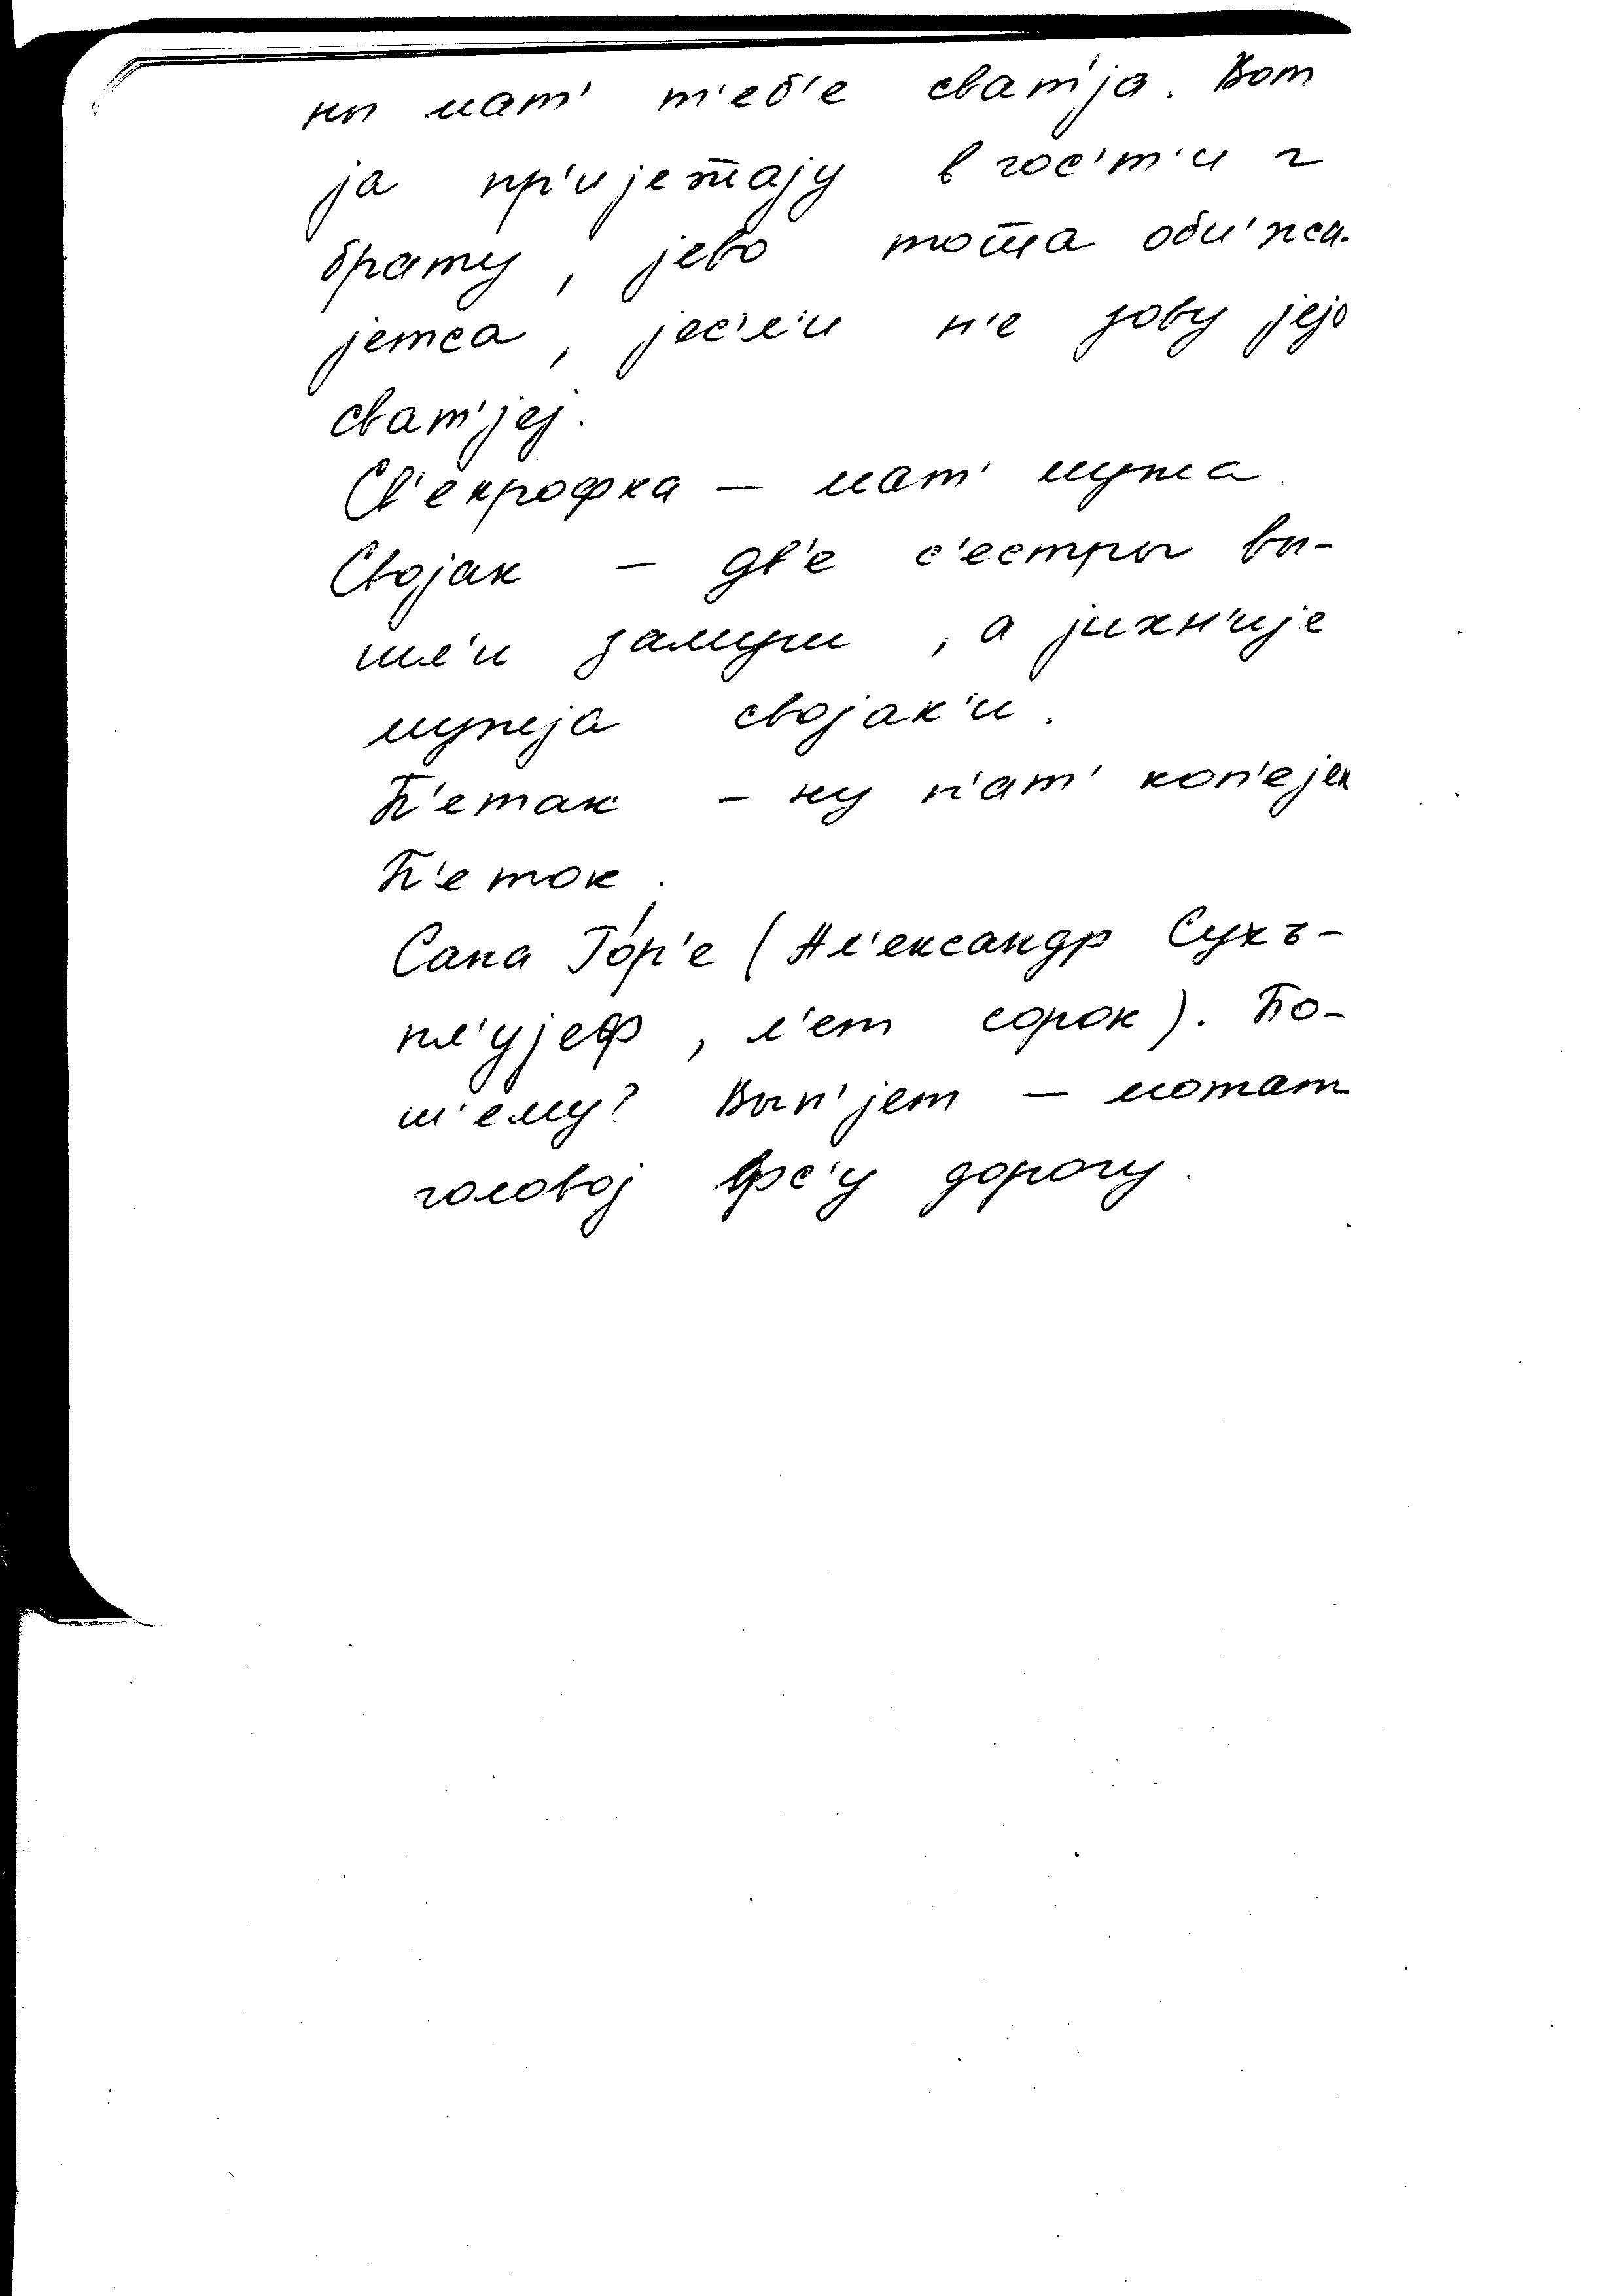 ны мат' т'еб'е сват'jа. Вот
jа пр'иjетаjу в гос'т'и г
брату, jево тоша оби'жа-
jетса, jес'л'и н'е зову jеjо
сват'jеj.
Св'екрофка — мат' мужа
Своjак — дв'е с'естры вы-
шл'и замуш, а jихн'иjе
мужjа своjак'и.
П'етак — ну п'ат' коп'еjек
П'еток.
Сана Го́р'е (Ал'ександр Сухъ-
пл'уjеф, л'ет сорок). По-
ш'ему? Вып'jет — мотат
головоj фс'у дорогу.